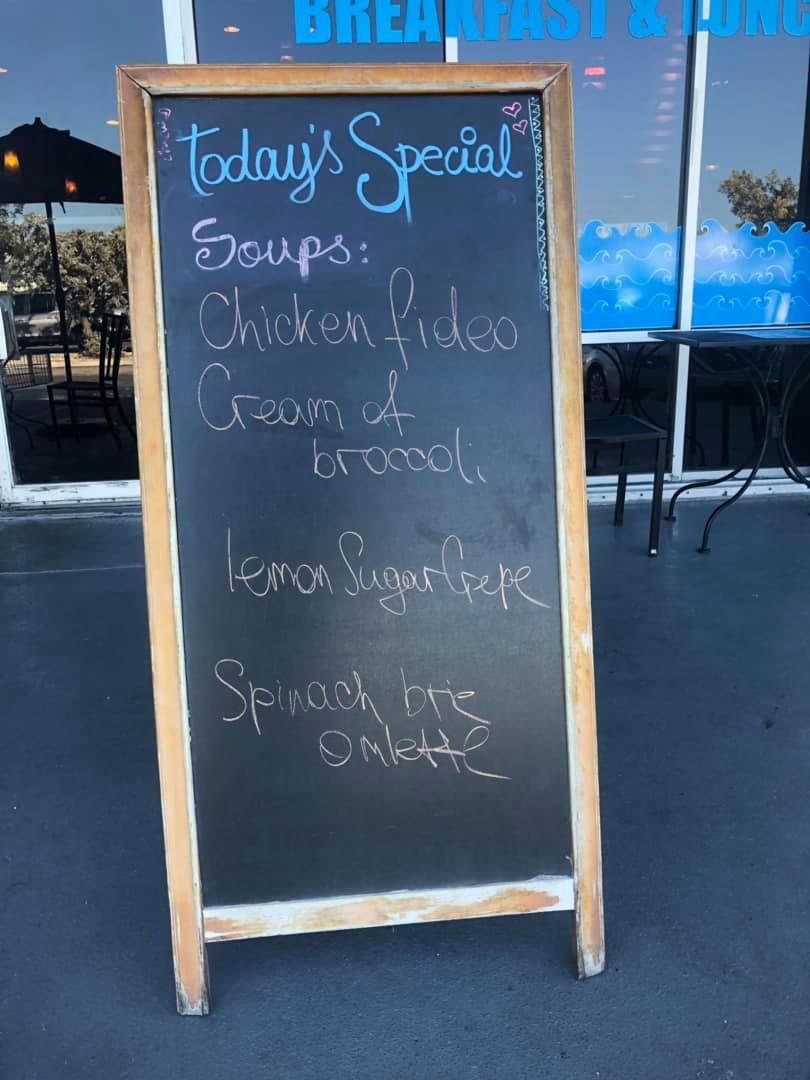 BREAKFAST & LUNC
Today's Special
Soups:
Chicken fideo
Cream of
broccoli
Lemon Sugar Crepe
Spinach brie
omlette